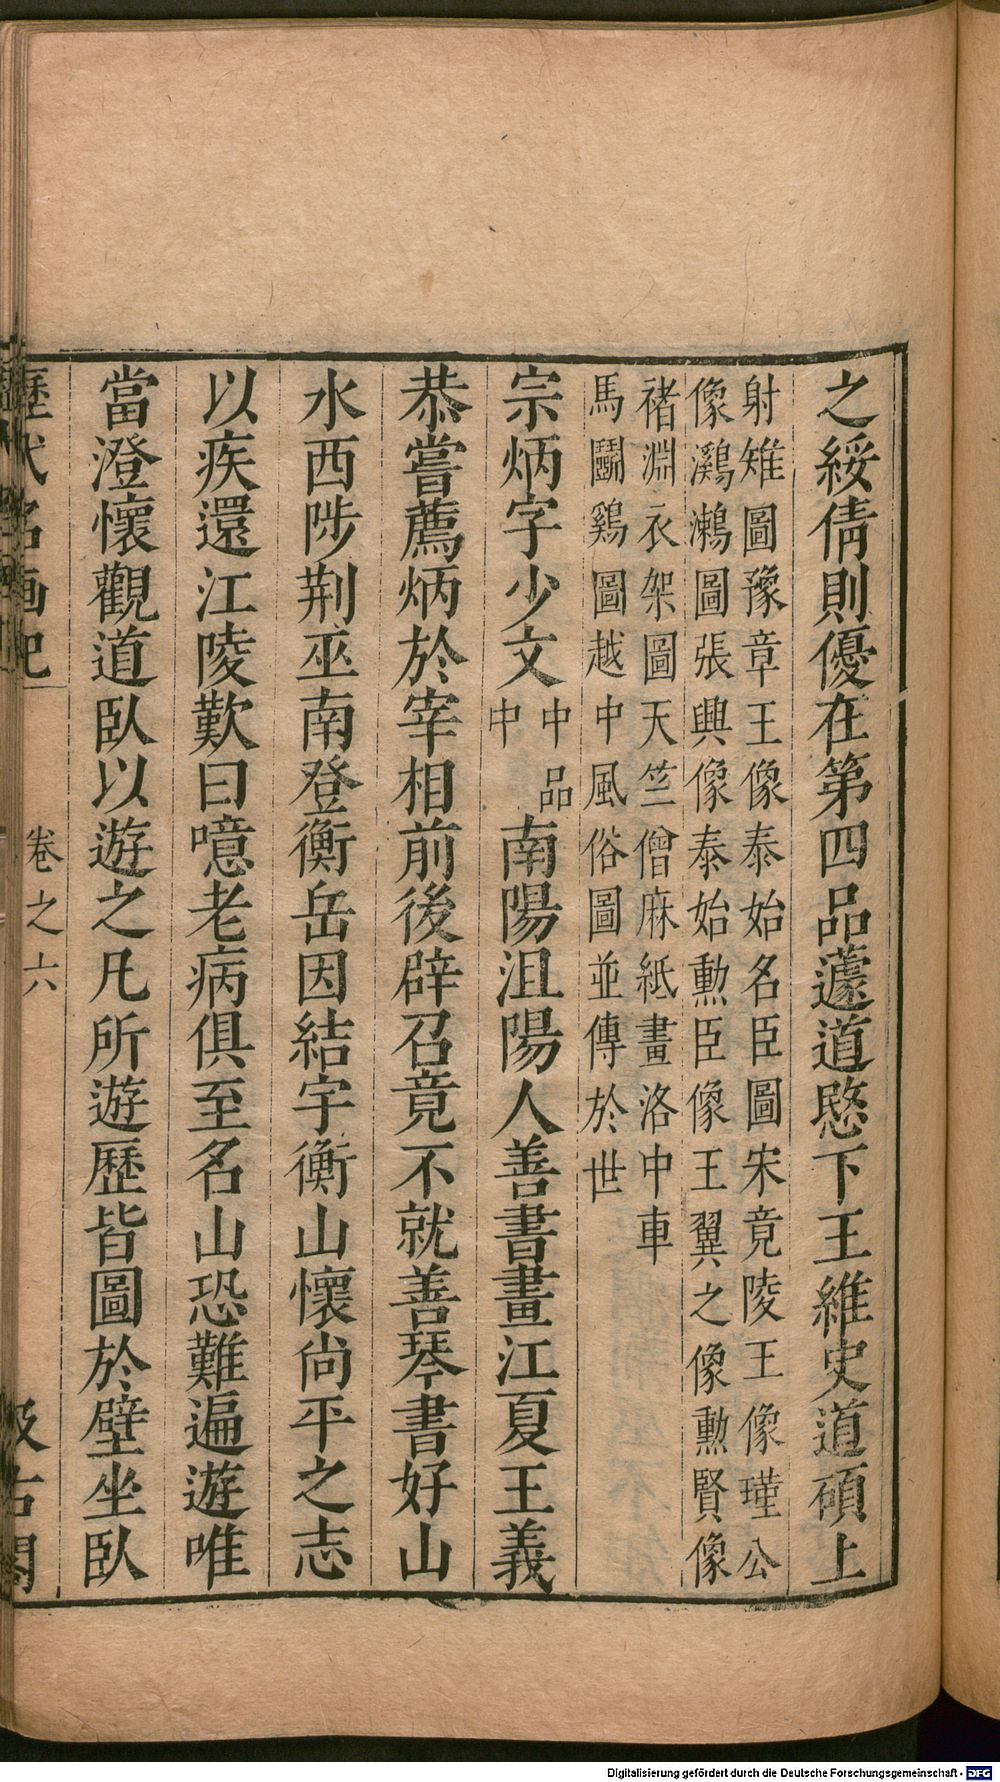 之綏倩則優在第四品蘧道愍下王維史道碩上
射雉圖豫章王像泰始名臣圖宋竟陵王像瑾公
像鸂鷘圖張興像泰始勳臣像王翼之像勳賢像
褚淵衣架圖天竺僧麻紙畫洛中車
馬鬭鷄圖越中風俗圖並傳於世
宗炳字少文中品
中
南陽沮陽人善書畫江夏王義
恭嘗薦炳於宰相前後辟召竟不就善琴書好山
水西陟荆巫南登衡岳因結宇衡山懷尙平之志
以疾還江陵歎曰噫老病俱至名山恐難遍遊唯
當澄懷觀道臥以遊之凡所遊歷皆圖於壁坐臥
歷代名画記 卷之六 汲古閣
Digitalisierung gefördert durch die Deutsche Forschungsgemeinschaft - DFG